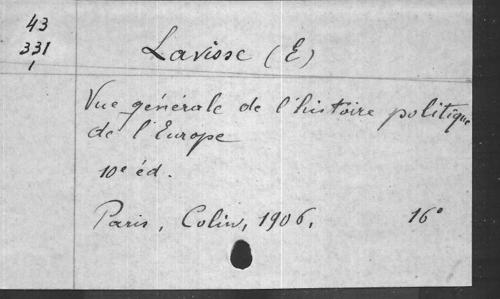 43
331
1
Lavisse (E)
Vue générale de l'histoire politique
de l'Europe
10e éd.
Paris, Colin, 1906. 16°